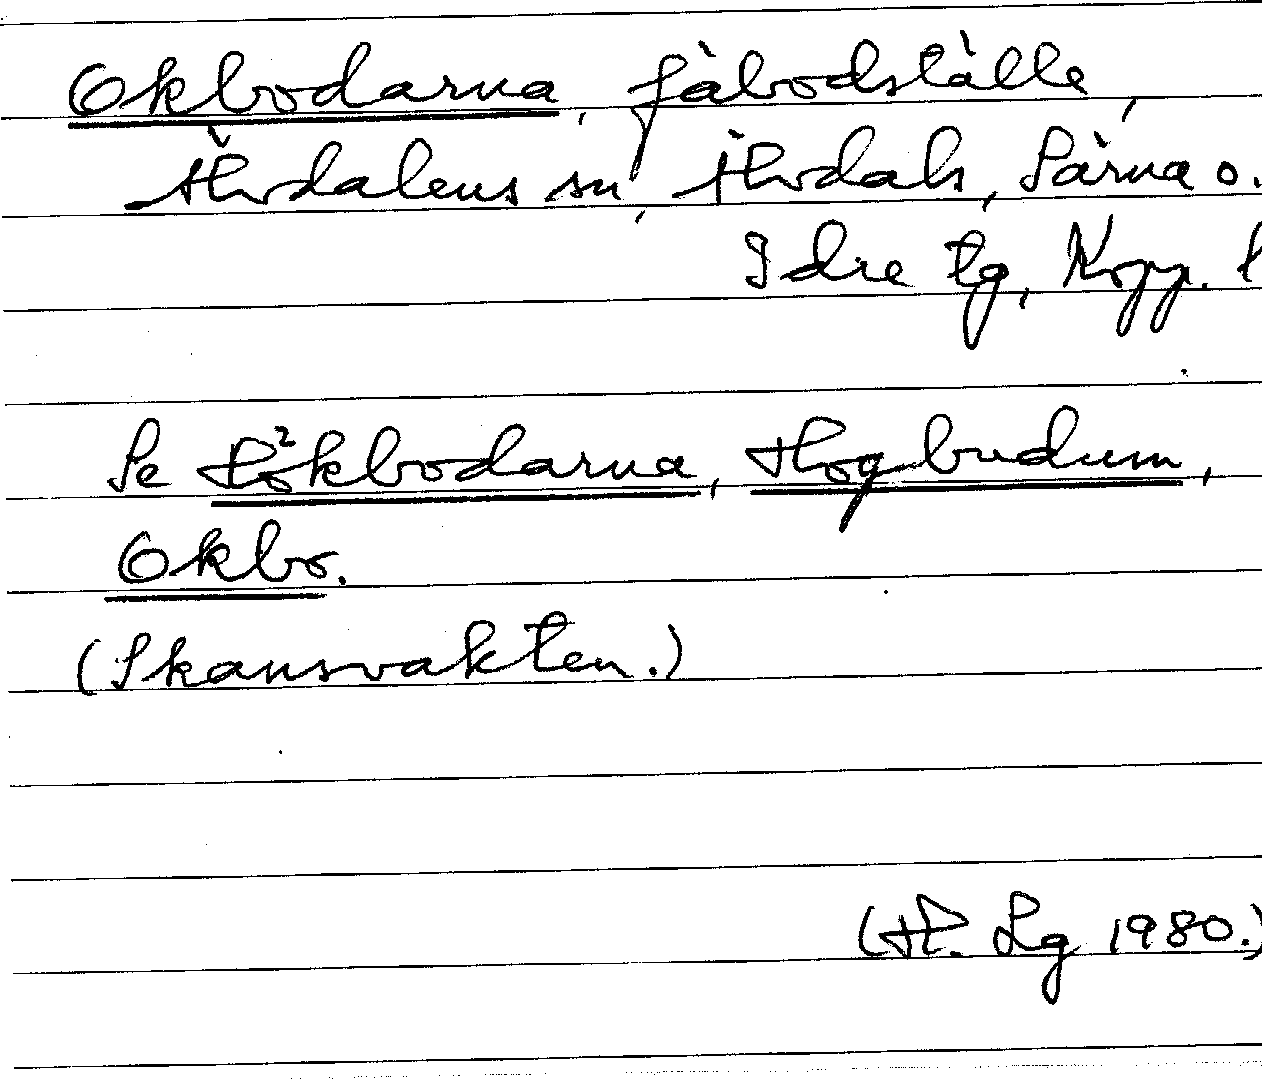 Okbodarna, fäbodställe,
Älvdalens sn, Älvdals, Särna o.
Idre tg, Kopp. l
Se Hökbodarna, Hogbudum,
Okbo.
(Skansvakten.)
(H. Lg 1980.)